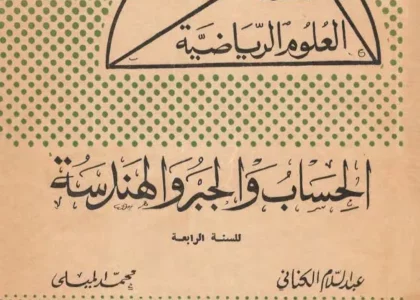 العُلوُم الرّيَاضيَّة
الحِسَابُ وَالجَبرُ وَالهَندسَة
للسنة الرابعة
عبد السّلام الكناني